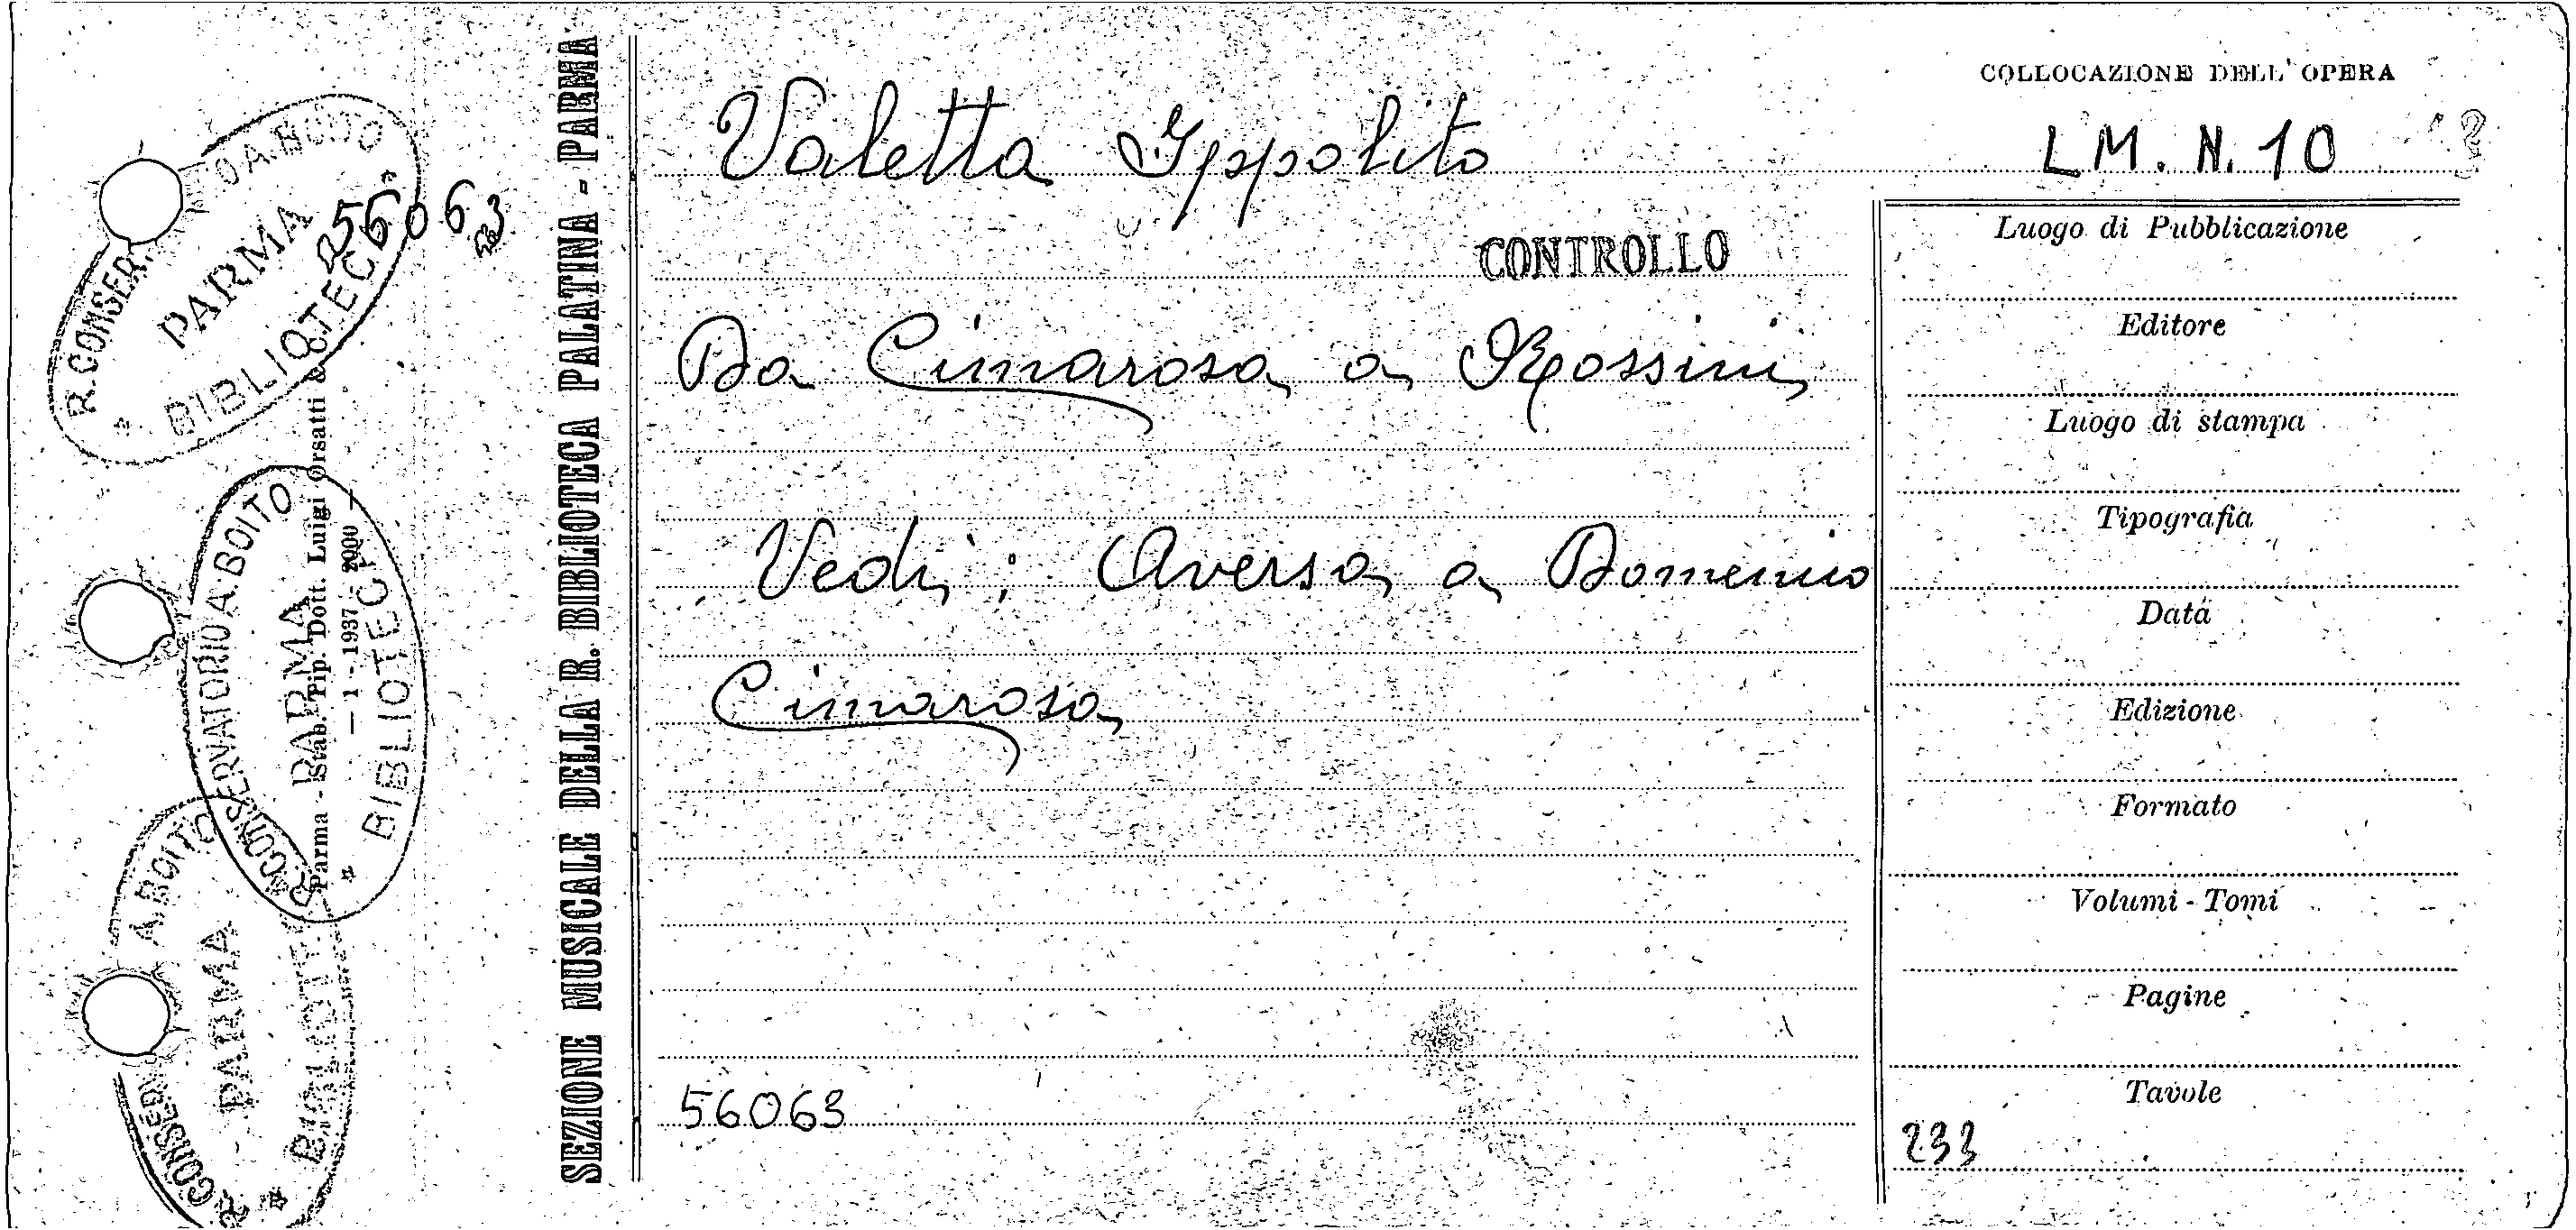 COLLOCAZIONE DELL' OPERA
Valetta Ippolito
LM. N. 10
CONTROLLO
Da Cimarosa a Rossini
Vedi: Aversa a Domenico
Cimarosa
56063
Luogo di Pubblicazione
Editore
Luogo di stampa
Tipografia
Data
Edizione
Formato
Volumi - Tomi
Pagine
Tavole
233
SEZIONE MUSICALE DELLA R. BIBLIOTECA PALATINA - PARMA
Parma - Stab. Tip. Dott. Luigi Orsatti & C.
— 1 - 1937 - 2000 —
56063
R. CONSER. A. BOITO
PARMA
BIBLIOTECA
R. CONSERVATORIO A. BOITO
PARMA
BIBLIOTECA
R. CONSERV A. BOITO
PARMA